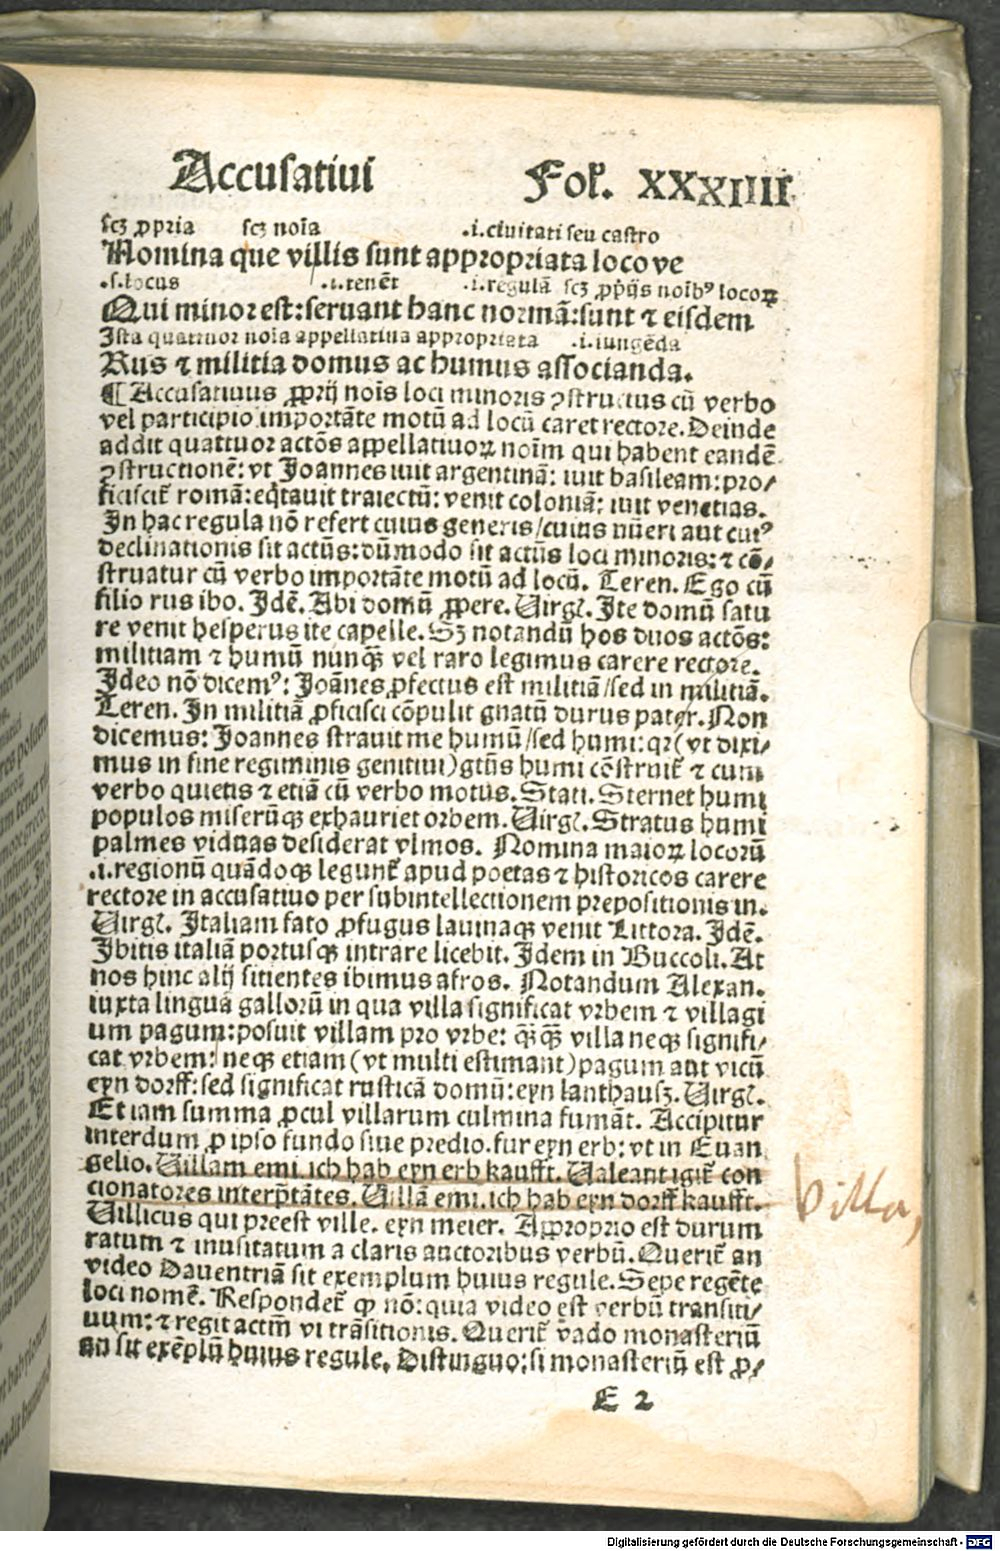 Accusatiui Fol. XXXIIII
scꝫ ꝓpria scꝫ noīa .i. ciuitati seu castro
Nomina que villis sunt appropriata locove
.s. locus .i. tenēt .i. regulā scꝫ ꝓpijs noībꝰ locoꝝ
Qui minor est: seruant hanc normā: sunt ⁊ eisdem
Ista quattuor noīa appellatiua appropriata .i. iungēda
Rus ⁊ militia domus ac humus associanda.
¶ Accusatiuus ꝓprij noīs loci minoris ꝯstructus cū verbo
vel participio importāte motū ad locū caret rectore. Deinde
addit quattuor actōs appellatiuoꝝ noīm qui habent eandē
ꝯstructionē: vt Joannes iuit argentinā: iuit basileam: pro/
ficiscit̄ romā: eq̄tauit traiectū: venit coloniā: iuit venetias.
In hac regula nō refert cuius generis/cuius nūeri aut cuiꝰ
declinationis sit actūs: dūmodo sit actūs loci minoris: ⁊ cō/
struatur cū verbo importāte motū ad locū. Teren. Ego cū
filio rus ibo. Idē. Abi domū ꝓpere. Uirgl. Ite domū satu
re venit hesperus ite capelle. Sꝫ notandū hos duos actōs:
militiam ⁊ humū nunqꝫ̄ vel raro legimus carere rectore.
Ideo nō dicemꝰ: Joānes ꝓfectus est militiā/sed in militiā.
Teren. In militiā ꝓficisci cōpulit gnatū durus pater. Non
dicemus: Joannes strauit me humū/sed humi: qꝛ (vt dixi/
mus in fine regiminis genitiui) gtūs humi cōstruit̄ ⁊ cum
verbo quietis ⁊ etiā cū verbo motus. Stati. Sternet humi
populos miserūqꝫ exhauriet orbem. Uirgl. Stratus humi
palmes viduas desiderat vlmos. Nomina maioꝝ locorū
.i. regionū quādoqꝫ legunt̄ apud poetas ⁊ historicos carere
rectore in accusatiuo per subintellectionem prepositionis in.
Uirgl. Italiam fato ꝓfugus lauinaqꝫ venit Littora. Idē.
Ibitis italiā portusqꝫ intrare licebit. Idem in Buccoli. At
nos hinc alij sitientes ibimus afros. Notandum Alexan.
iuxta linguā gallorū in qua villa significat vrbem ⁊ villagi
um pagum: posuit villam pro vrbe: qꝫ̄qꝫ̄ villa neqꝫ signifi/
cat vrbem: neqꝫ etiam (vt multi estimant) pagum aut vicū
eyn dorff: sed significat rusticā domū: eyn lanthausꝫ. Uirgl.
Et iam summa ꝓcul villarum culmina fumāt. Accipitur
interdum ꝓ ipso fundo siue predio. fur eyn erb: vt in Euan
gelio. Uillam emi. ich hab eyn erb kaufft. Ualeant igit̄ con
cionatores interp̄tātes. Uillā emi. ich hab eyn dorff kaufft.
Villa,
Uillicus qui preest ville. eyn meier. Approprio est durum
ratum ⁊ inusitatum a claris auctoribus verbū. Querit̄ an
video Dauentriā sit exemplum huius regule. Sepe regēte
loci nomē. Respondet̄ ꝙ nō: quia video est verbū transiti/
uum: ⁊ regit actm̄ vi trāsitionis. Querit̄ vado monasteriū
an sit exēplū huius regule. Distinguo: si monasteriū est ꝓ/
E 2
Digitalisierung gefördert durch die Deutsche Forschungsgemeinschaft - DFG